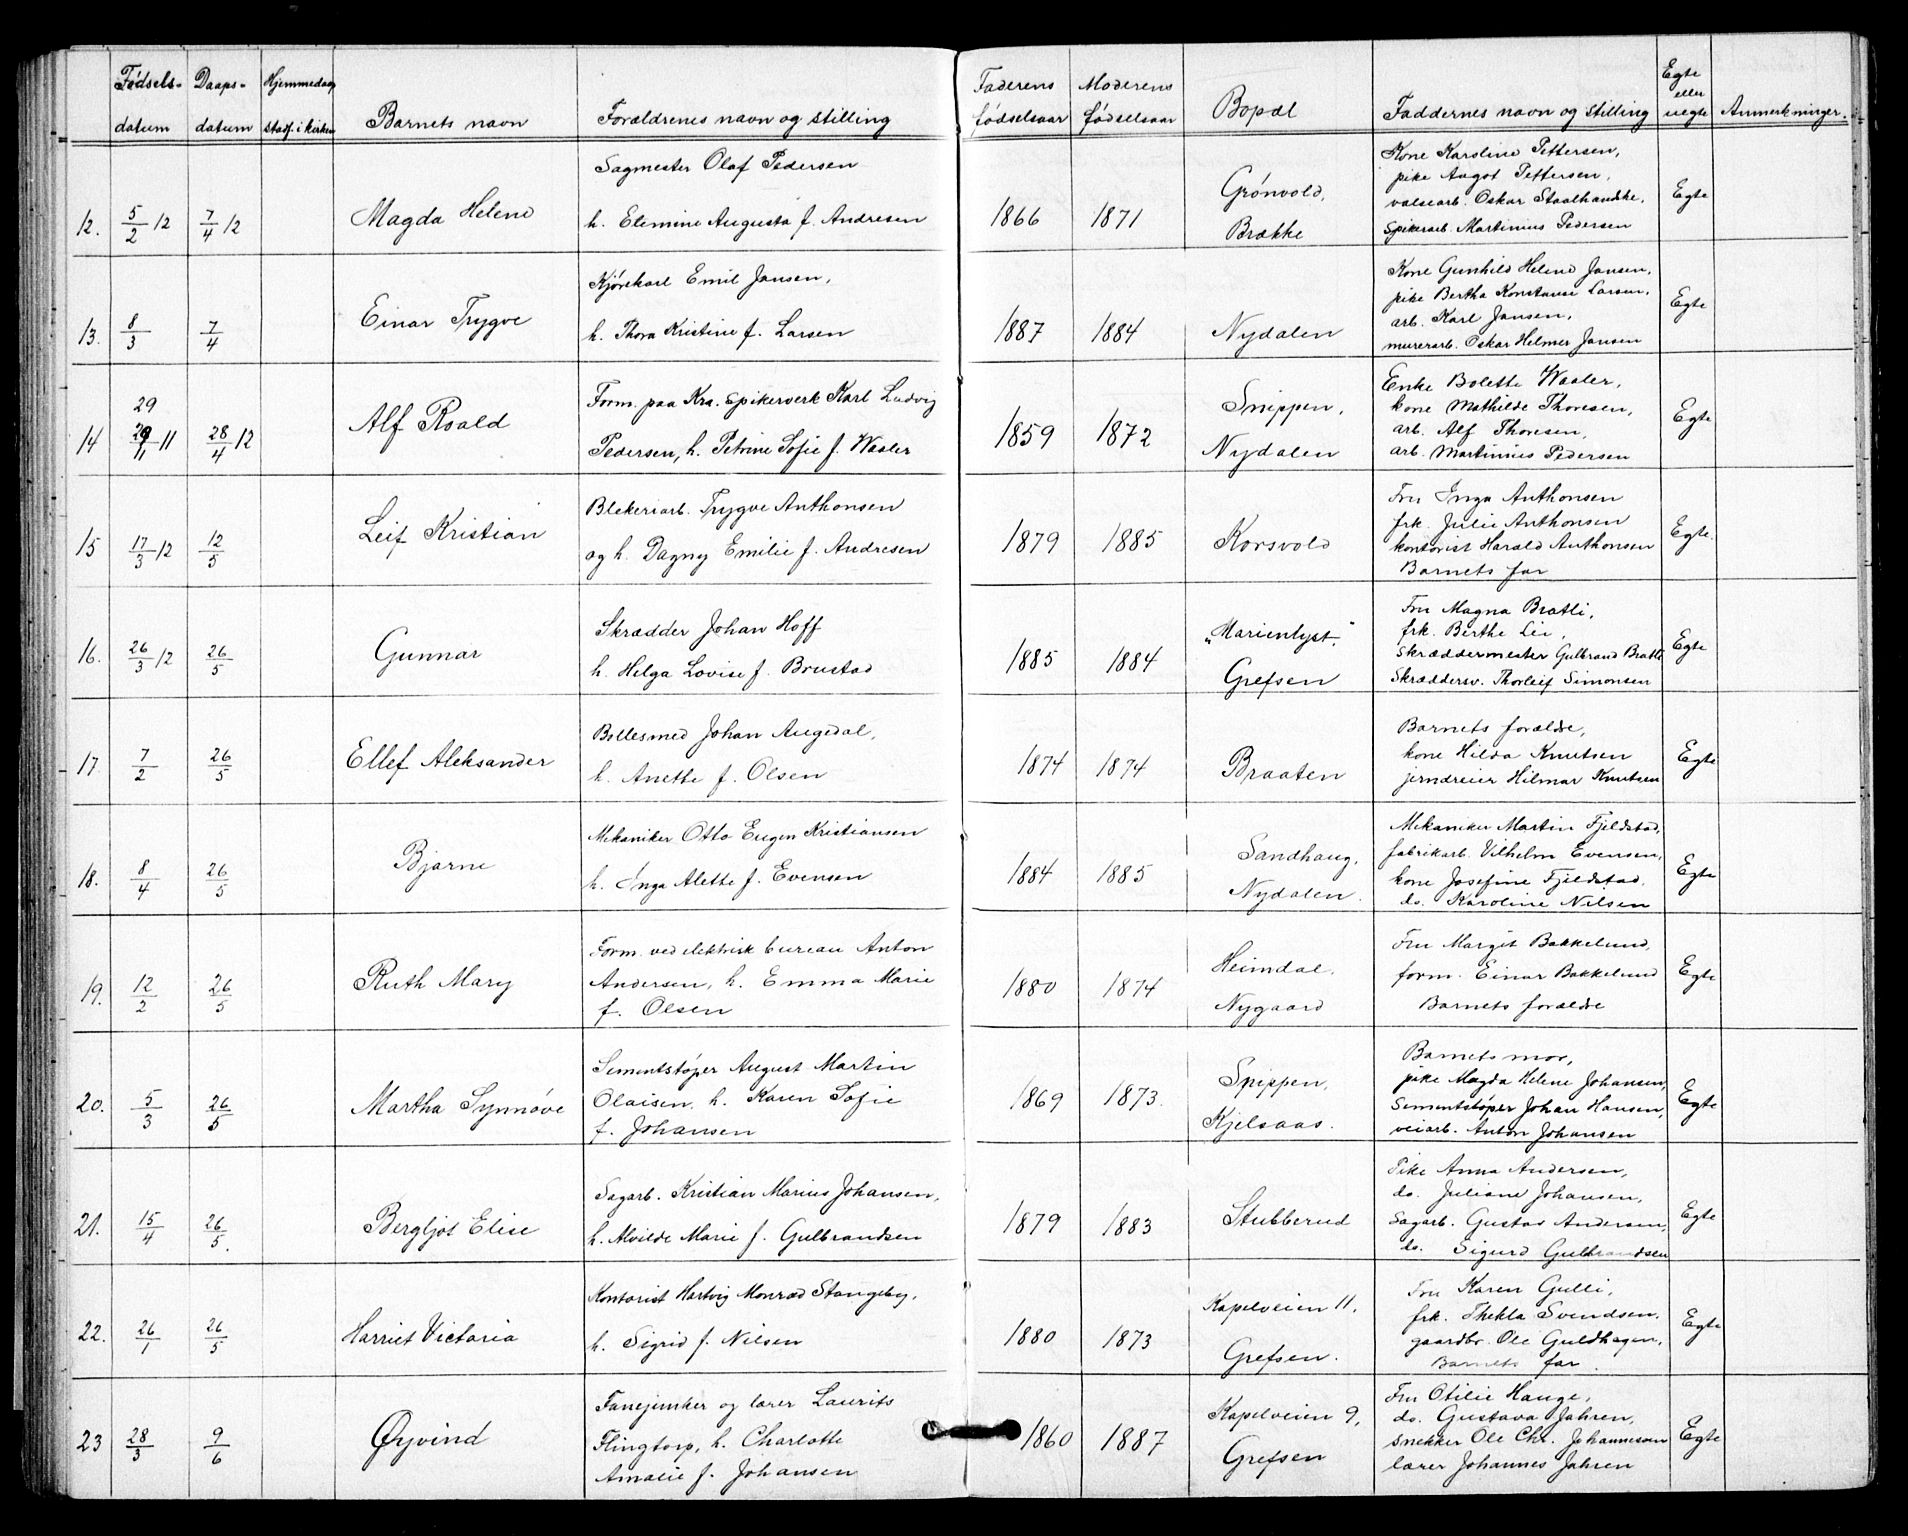 Fødsels-datum Daaps-datum Hjemmedaap stadf. i kirken Barnets navn Forældrenes navn og stilling Faderens fødselsaar Moderens fødselsaar Bopæl Faddernes navn og stilling Egte eller uegte Anmerkninger.
12. 5/2 12 7/4 12 Magda Helene
Sagmester Olaf Pedersen
h. Elemine Augusta f. Andresen
1866 1871
Grønvold,
Brække
Kone Karoline Pettersen,
pike Aagot Pettersen,
valsearb. Oskar Staalhandske,
Spikerarb. Martinius Pedersen
Egte
13. 8/3 7/4 Einar Trygve
Kjørekarl Emil Jansen,
h. Thora Kristine f. Larsen
1887 1884
Nydalen
Kone Gunhild Helene Jansen,
pike Bertha Konstanse Larsen,
arb. Karl Jansen,
murerarb. Oskar Helmer Jansen
Egte
29
14 11 28/4 12 Alf Roald
Form. paa Kra. Spikerverk Karl Ludvig
Pedersen, h. Petrine Sofie f. Waaler
1859 1872
Snippen,
Nydalen
Enke Bolette Waaler,
kone Mathilde Thoresen,
arb. Alf Thoresen,
arb. Martinius Pedersen
Egte
15 17/3 12 12/5 Leif Kristian
Blekeriarb. Trygve Anthonsen
og h. Dagny Emilie f. Andresen
1879 1885
Korsvold
Fru Inga Anthonsen
frk. Julie Anthonsen
kontorist Harald Anthonsen
Barnets far
Egte.
16. 26/3 12 26/5 Gunnar
Skrædder Johan Hoff
h. Helga Lovise f. Brustad
1885 1884
"Marienlyst,"
Grefsen
Fru Magna Bratli,
frk. Berthe Lie,
Skræddermester Gulbrand Bratli
Skræddersv. Thorleif Simonsen
Egte
17. 7/2 26/5 Ellef Aleksander
Bøllesmed Johan Augedal,
h. Anette f. Olsen
1874 1874
Braaten
Barnets forældre,
kone Hilda Knutsen
jerndreier Hilmar Knutsen
Egte
18. 8/4 26/5 Bjarne
Mekaniker Otto Eugen Kristiansen
h. Inga Alette f. Evensen
1884 1885
Sandhaug,
Nydalen.
Mekaniker Martin Fjeldstad,
fabrikarb. Vilhelm Evensen,
kone Josefine Fjeldstad.
do. Karoline Nilsen
Egte
19. 12/2 26/5 Ruth Mary
Form. ved elektrisk bureau Anton
Andersen, h. Emma Marie
f. Olsen
1880 1874
Heimdal.
Nygaard
Fru Margit Bakkelund,
form. Einar Bakkelund
Barnets forældre
Egte
20. 5/3 26/5 Martha Synnøve
Sementstøper August Martin
Olaisen. h. Karen Sofie
f. Johansen
1869 1873.
Kjelsaas.
Barnets mor,
pike Magda Helene Johansen,
Sementstøper Johan Hansen,
veiarb. Anton Johansen
Egte
21. 15/4 26/5. Bergljot Elise
Sagarb. Kristian Marius Johansen,
h. Alvilde Marie f. Gulbrandsen
1879 1883
Stubberud
Pike Anna Andersen,
do. Juliane Johansen,
Sagarb. Gustav Andersen,
do. Sigurd Gulbrandsen
Egte
22. 26/1 26/5 Harriet Victoria
Kontorist Hartvig Monrad Stangeby,
h. Sigrid f. Nilsen
1880 1873
Kapelveien 11,
Grefsen.
Fru Karen Gulli,
frk. Thekla Svendsen.
gaardbr. Ole Guldhagen,
Barnets far.
Egte
23 28/3 9/6 Øyvind
Fanejunker og lærer Laurits
Flingtorp, h. Charlotte
Amalie f. Johansen
1860 1887
Kapelveien 9,
Grefsen
Fru Otilie Hauge,
do. Gustava Jahren,
Snekker Ole Chr. Johannesen
lærer Johannes Jahren
Egte